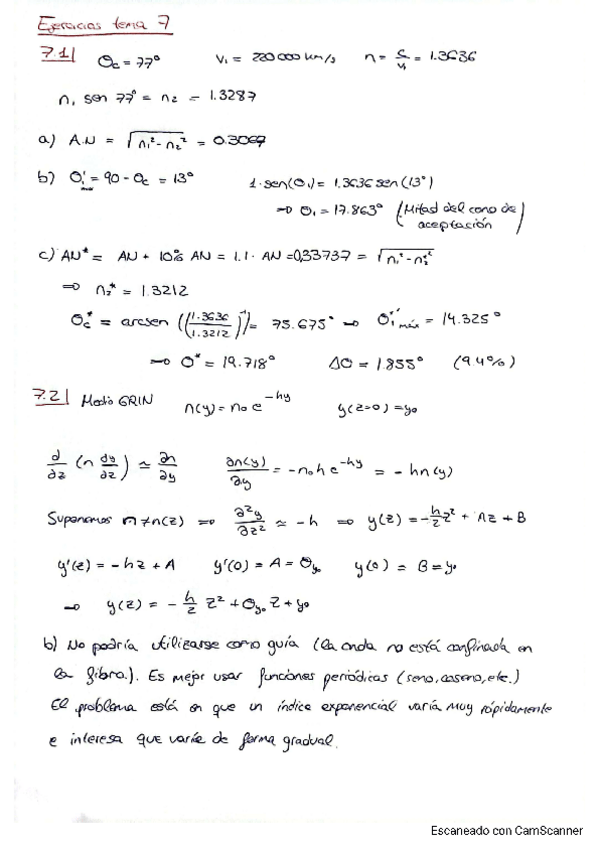 Ejercicios tema 7
7.1| Θc = 77° V₁ = 220000 km/s n = c/v₁ = 1.3636
n₁ sen 77° = n₂ = 1.3287
a) A.N = √(n₁² - n₂²) = 0.3067
b) Θ₁'máx = 90 - Θc = 13° 1·sen(Θ₁) = 1.3636 sen(13°)
⇒ Θ₁ = 17.863° (Mitad del cono de aceptación)
c) AN* = AN + 10% AN = 1.1 · AN = 0,33737 = √(n₁² - n₂*²)
⇒ n₂* = 1.3212
Θc* = arcsen ((1.3636/1.3212)⁻¹) = 75.675° ⇒ Θ₁'máx = 14.325°
⇒ Θ* = 19.718° ΔΘ = 1.855° (9.4%)
7.2| Medio GRIN n(y) = n₀ e^(-hy) y(z=0) = y₀
d/dz (n dy/dz) ≃ ∂n/∂y ∂n(y)/∂y = -n₀ h e^(-hy) = -hn(y)
Suponemos n≠n(z) ⇒ ∂²y/∂z² ≃ -h ⇒ y(z) = -h/2 z² + Az + B
y'(z) = -hz + A y'(0) = A = Θy₀ y(0) = B = y₀
⇒ y(z) = -h/2 z² + Θy₀ z + y₀
b) No podría utilizarse como guía (la onda no está confinada en
la fibra). Es mejor usar funciones periódicas (seno, coseno, etc.)
El problema está en que un índice exponencial varía muy rápidamente
e interesa que varíe de forma gradual.
Escaneado con CamScanner